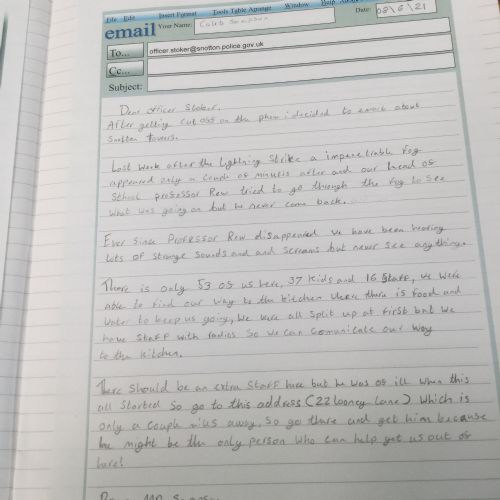 File Edit Insert Format Tools Table Arrange Window Help
email Your Name: Caleb Date: 08/6/21
To... officer.stoker@snotton.police.gov.uk
Cc...
Subject:
Dear officer Stoker,
After getting cut off on the phone i decided to email about
Snotton Towers.
Last week after the lightning Strike a impenetrable fog
appeared only a couple of minutes after and our head of
School professor Rew tried to go through the fog to See
what was going on but he never come back.
Ever Since Professor Rew disappeared we have been hearing
lots of strange Sounds and and Screams but never See anything.
There is only 53 of us here, 37 kids and 16 Staff, we were
able to find our way to the kitchen where there is food and
water to keep us going, we were all Split up at first but we
have Staff with radios So we can comunicate our way
to the kitchen.
There Should be an extra Staff here but he was of ill when this
all Started So go to this address (22 looney Lane) which is
only a couple miles away, So go there and get him because
he might be the only person who can help get us out of
here!